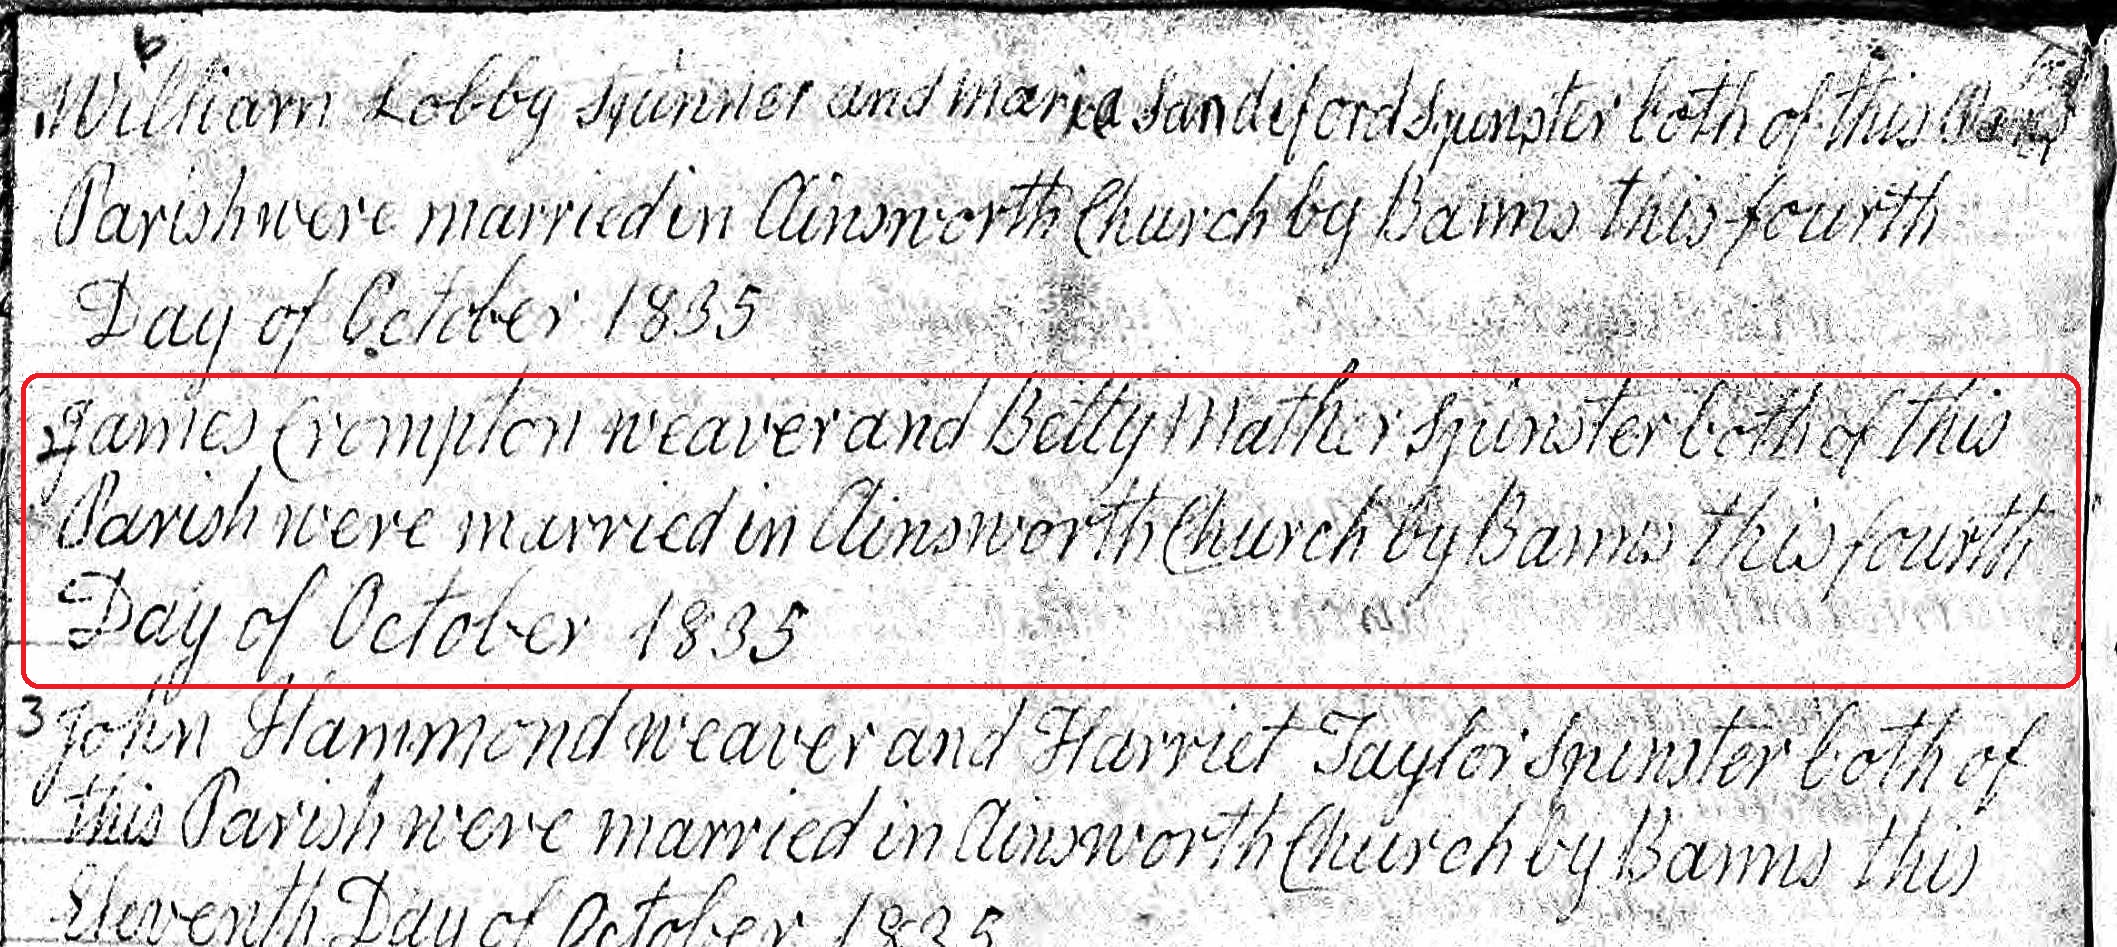 William Lobby Spinner and Maria Sandiford Spinster both of this
Parish were married in Ainsworth Church by Banns this fourth
Day of October 1835
2 James Crompton weaver and Betty Mather Spinster both of this
Parish were married in Ainsworth Church by Banns this fourth
Day of October 1835
3 John Hammond weaver and Harriet Taylor Spinster both of
this Parish were married in Ainsworth Church by Banns this
Eleventh Day of October 1835